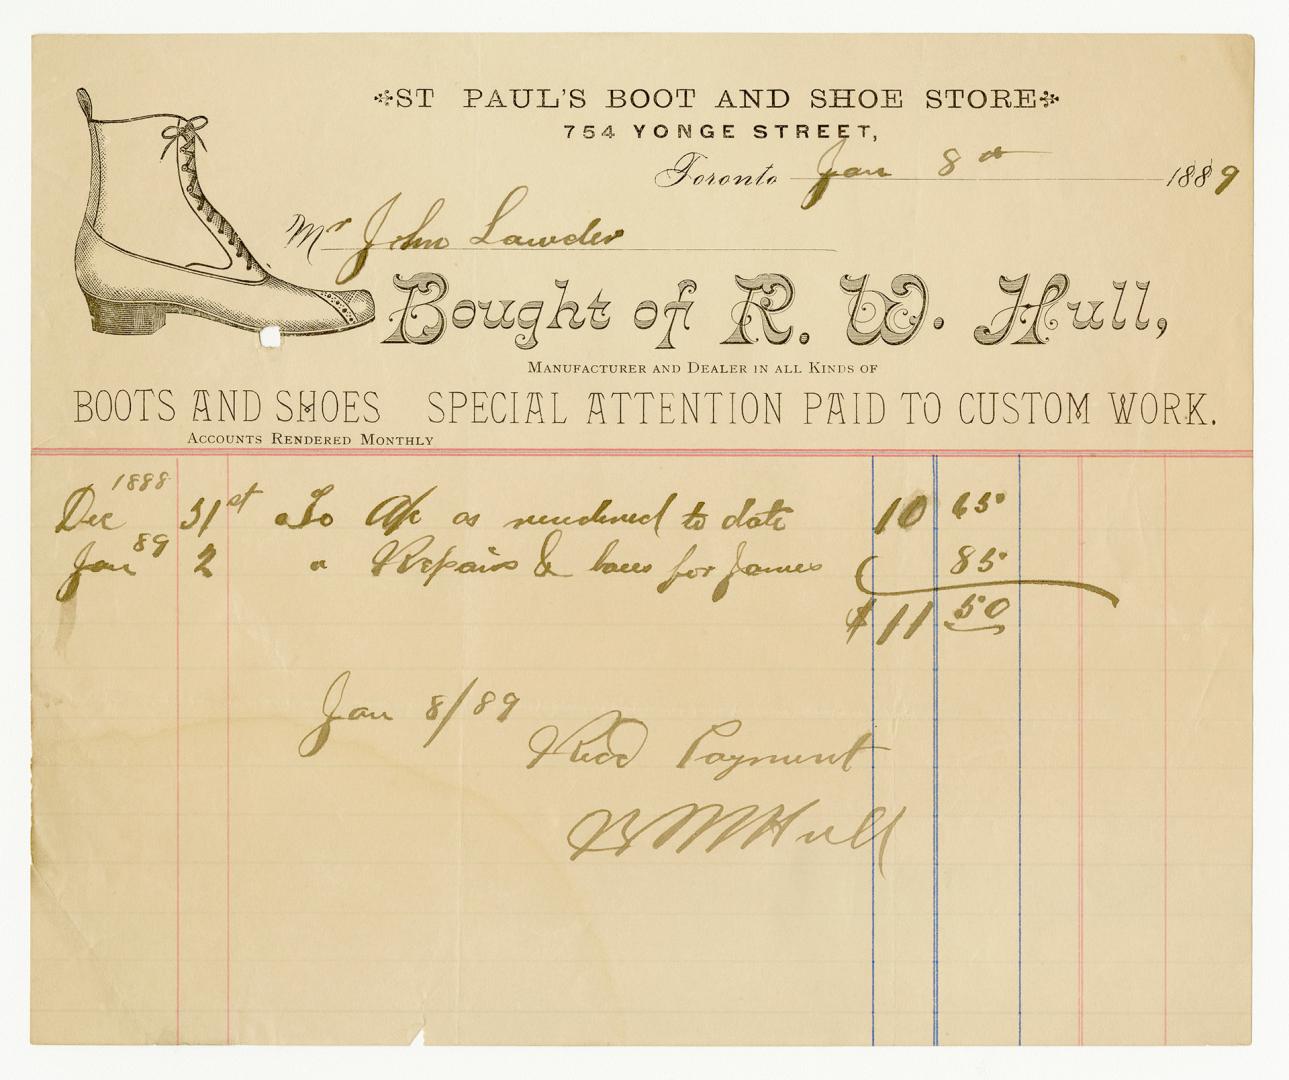 ST PAUL'S BOOT AND SHOE STORE
754 YONGE STREET,
Toronto Jan 8th 1889
Mr John Lawder
Bought of R. W. Hull,
MANUFACTURER AND DEALER IN ALL KINDS OF
BOOTS AND SHOES SPECIAL ATTENTION PAID TO CUSTOM WORK.
ACCOUNTS RENDERED MONTHLY
Dec 1888 31st To A/c as rendered to date 10 65
Jan 89 2 " Repairs & laces for James 85
$11 50
Jan 8/89
Recd Payment
R W Hull